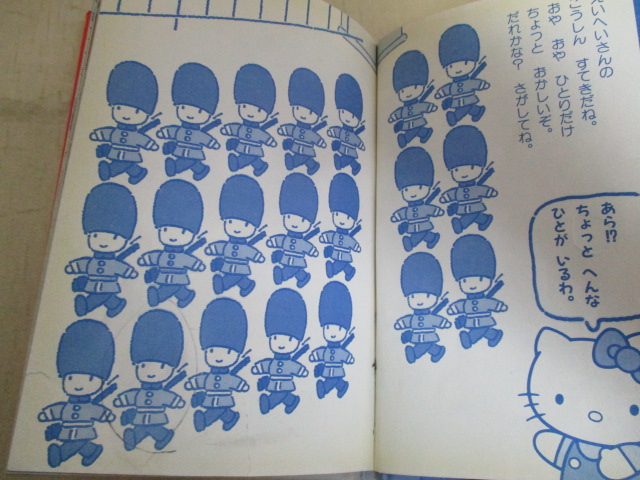 えいへいさんの
こうしん すてきだね。
おや おや ひとりだけ
ちょっと おかしいぞ。
だれかな? さがしてね。
あら!?
ちょっと へんな
ひとが いるわ。